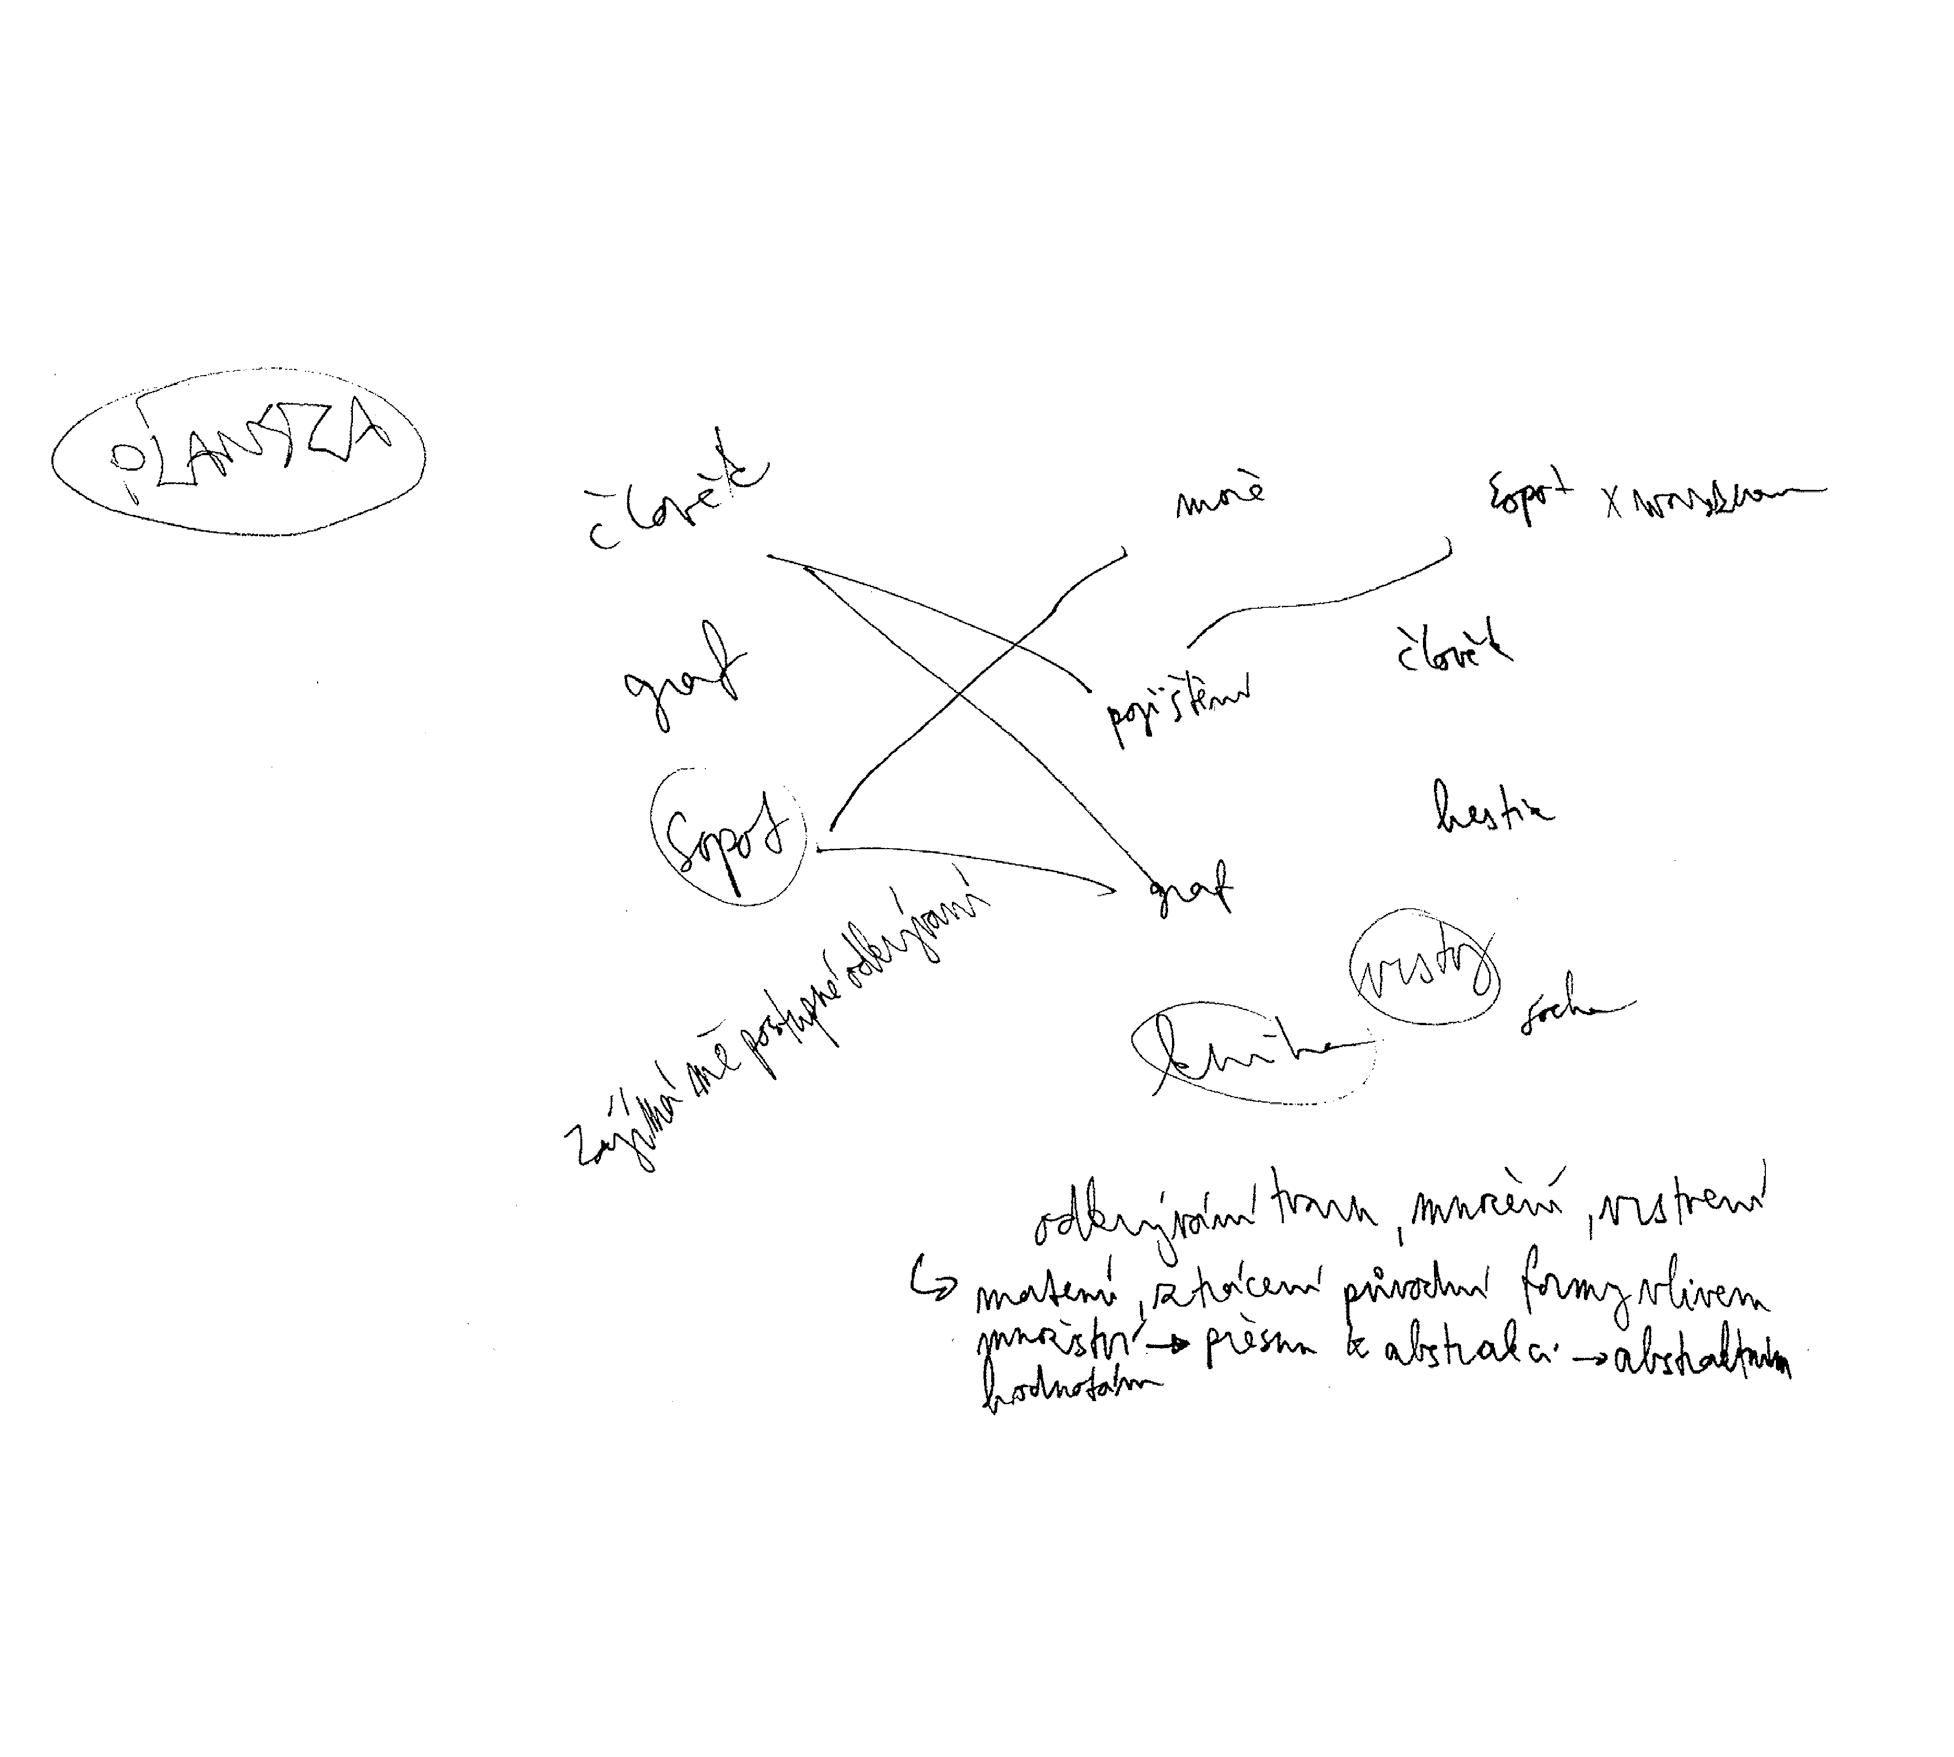 PLANSZA
člověk
moře
Sopot x
graf
člověk
pojištění
Sopot
hestia
graf
vrstvy
socha
kniha
Zajímá mě postupné odkrývání
odkrývání tvaru, množení, vrstvení
↳ matení, ztrácení původní formy vlivem
množství → přesun k abstrakci → abstraktním
hodnotám